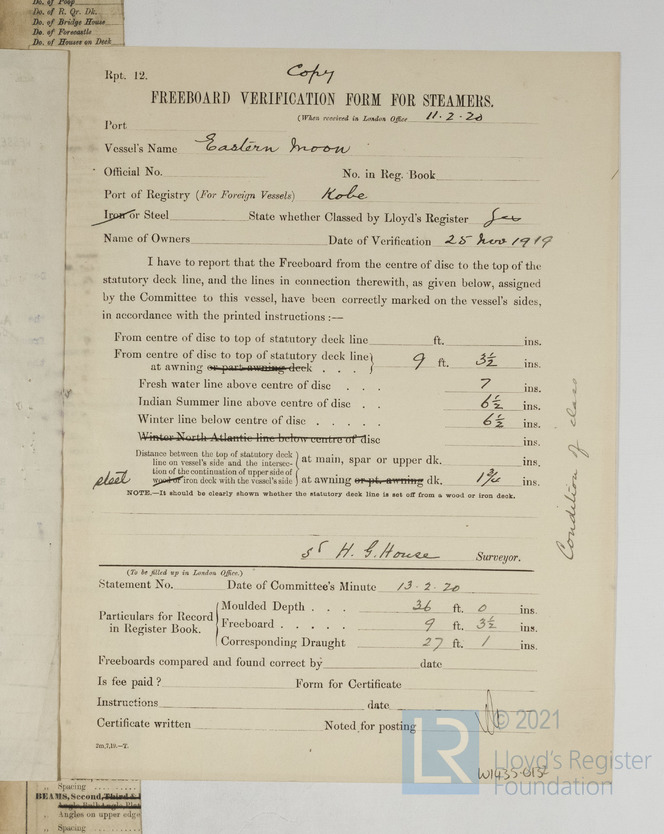 Do. of Poop
Do. of R. Qr. Dk.
Do. of Bridge House
Do. of Forecastle
Do. of Houses on Deck
Rpt. 12.
Copy
FREEBOARD VERIFICATION FORM FOR STEAMERS.
(When received in London Office 11.2.20
Port
Vessel's Name Eastern Moon
Official No. No. in Reg. Book
Port of Registry (For Foreign Vessels) Kobe
Iron or Steel State whether Classed by Lloyd's Register Yes
Name of Owners Date of Verification 25 Nov 1919
I have to report that the Freeboard from the centre of disc to the top of the
statutory deck line, and the lines in connection therewith, as given below, assigned
by the Committee to this vessel, have been correctly marked on the vessel's sides,
in accordance with the printed instructions :—
From centre of disc to top of statutory deck line ft. ins.
From centre of disc to top of statutory deck line
at awning or part awning deck . . . 9 ft. 3½ ins.
Fresh water line above centre of disc . . . 7 ins.
Indian Summer line above centre of disc . . 6½ ins.
Winter line below centre of disc . . . . . 6½ ins.
Winter North Atlantic line below centre of disc ins.
Distance between the top of statutory deck
line on vessel's side and the intersec-
tion of the continuation of upper side of
wood or iron deck with the vessel's side
steel
at main, spar or upper dk. ins.
at awning or pt. awning dk. 1¾ ins.
NOTE.—It should be clearly shown whether the statutory deck line is set off from a wood or iron deck.
Condition of class
H. G. House Surveyor.
(To be filled up in London Office.)
Statement No. Date of Committee's Minute 13.2.20
Particulars for Record
in Register Book.
Moulded Depth . . . 36 ft. 0 ins.
Freeboard . . . . . 9 ft. 3½ ins.
Corresponding Draught 27 ft. 1 ins.
Freeboards compared and found correct by date
Is fee paid? Form for Certificate
Instructions date
Certificate written Noted for posting
2m,7,19.—T.
LR
© 2021
Lloyd's Register
Foundation
W1435-0132
Spacing
BEAMS, Second, Third &
Angle, Bulb Angle, Plat
Angles on upper edge
Spacing